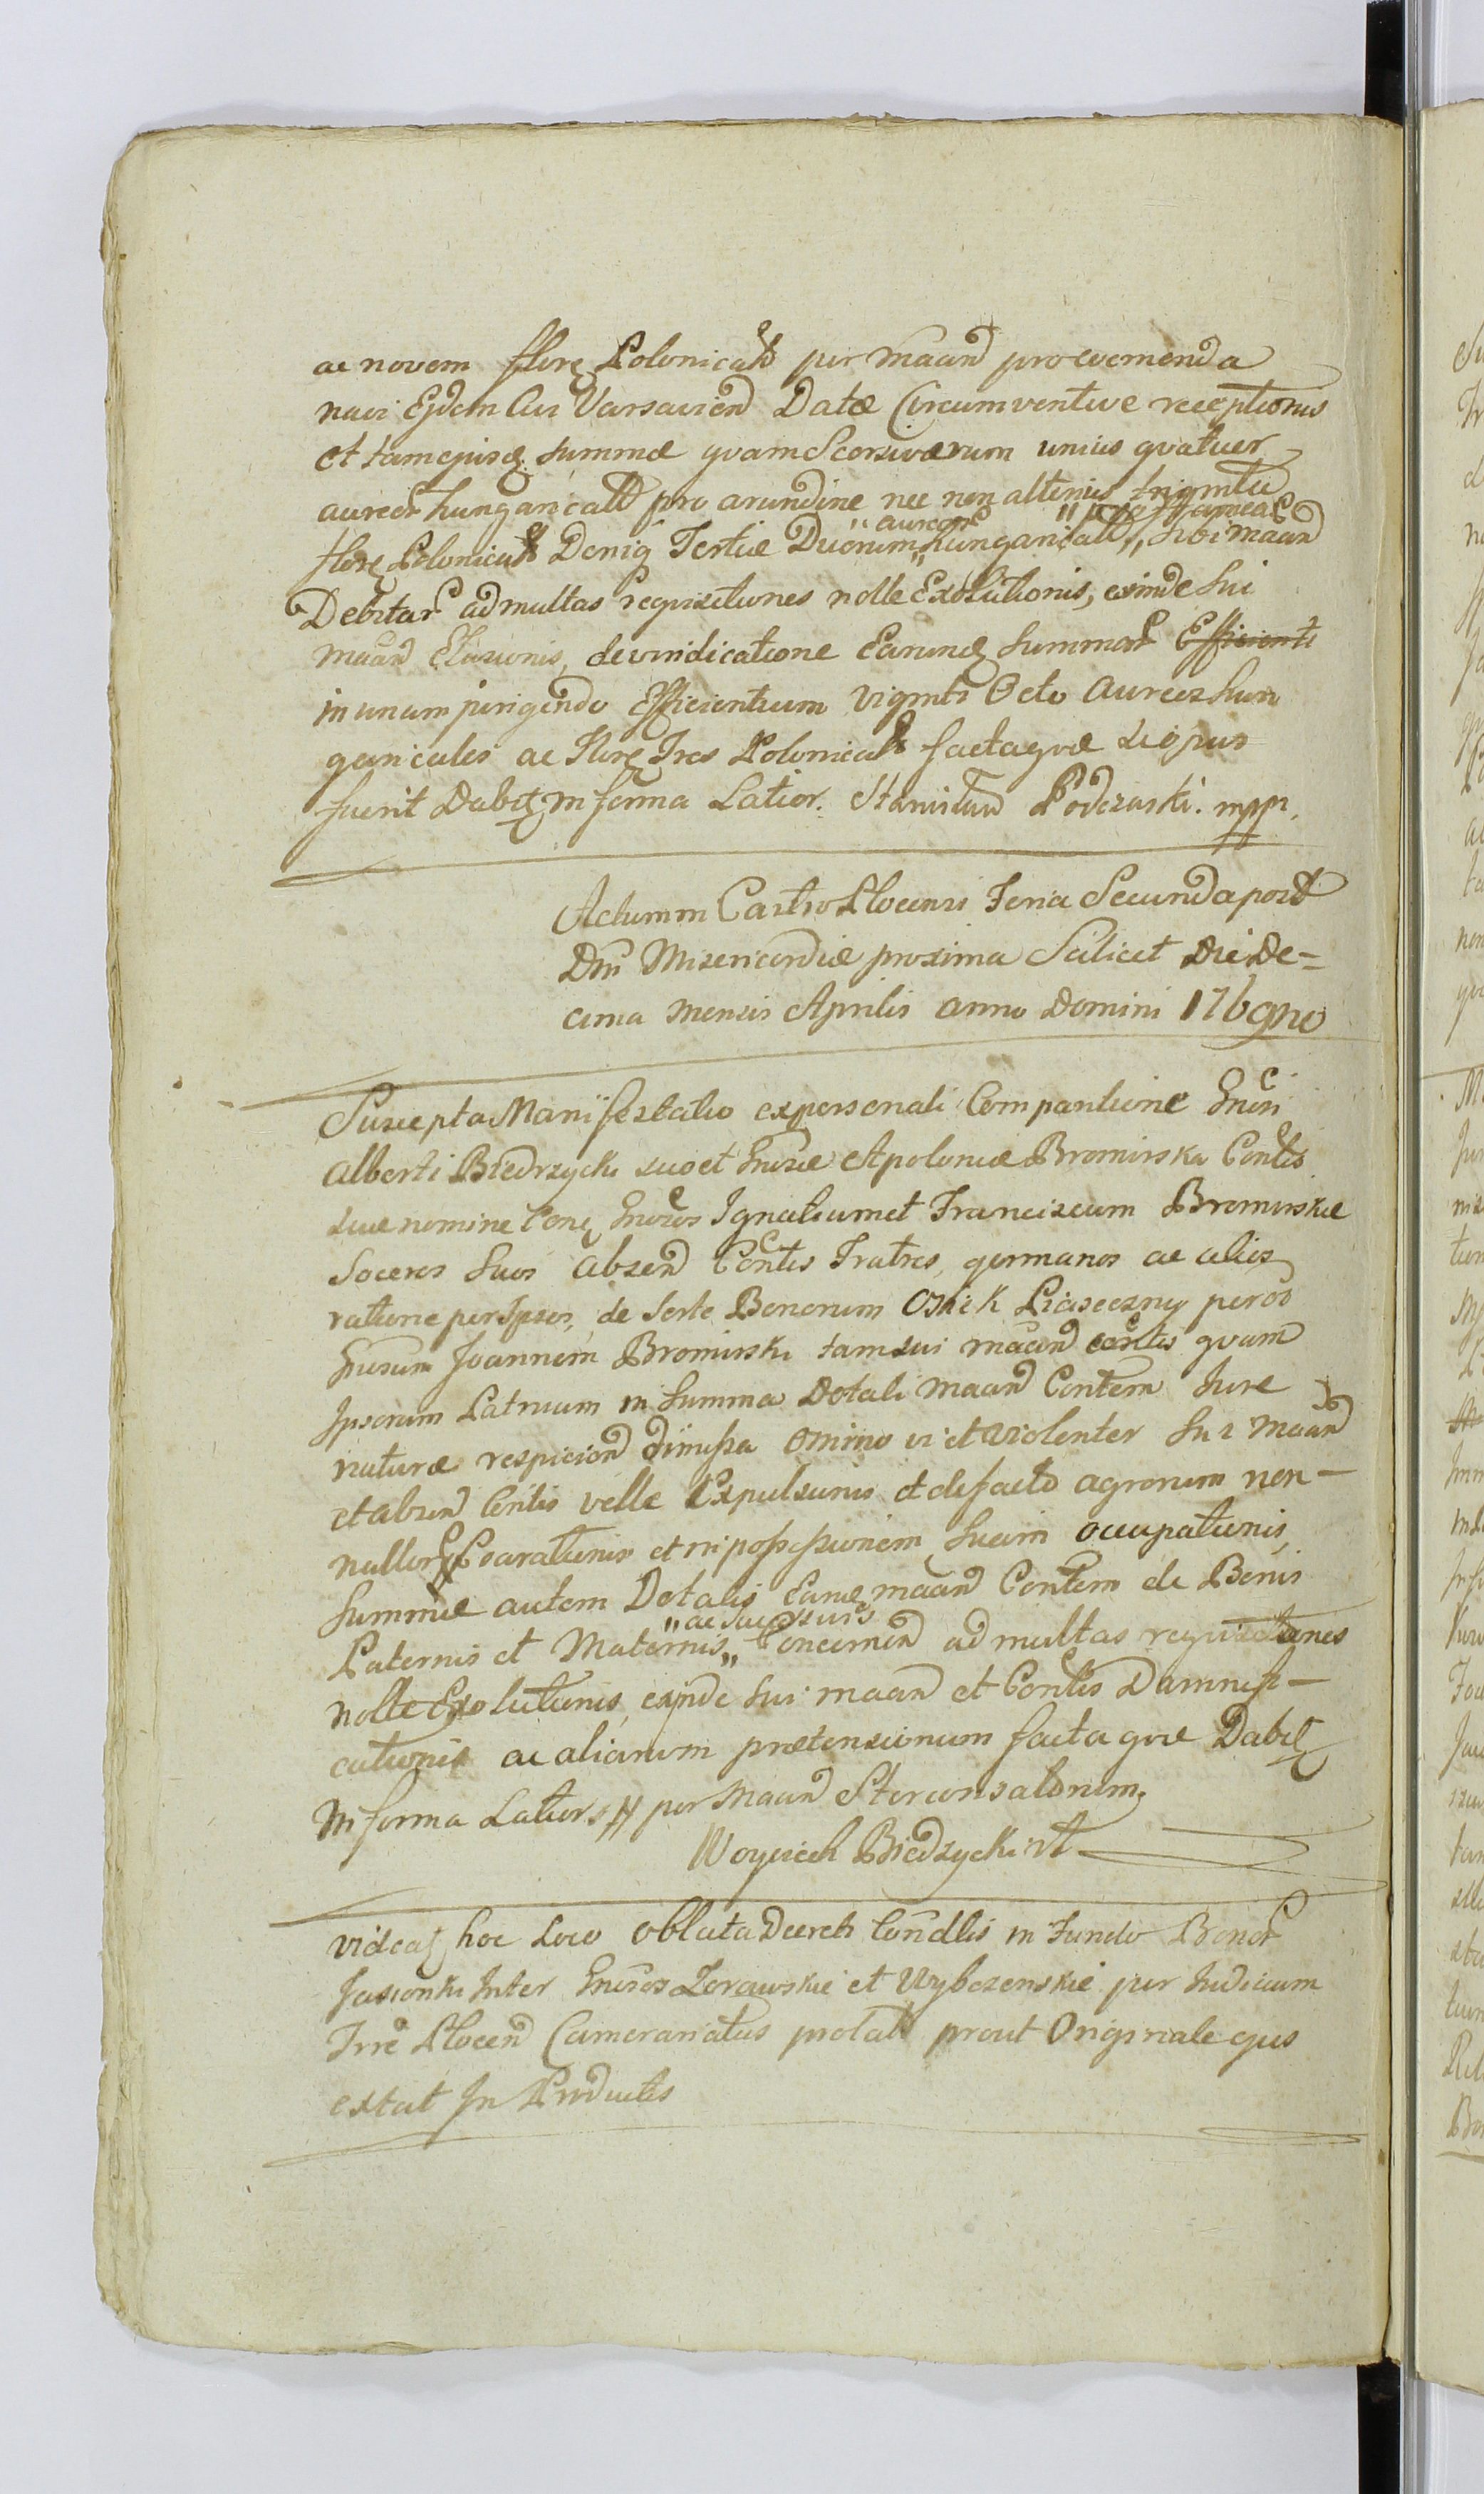 ac novem floren Polonicał per Maand pro coemenda
navi Ejdem Cui Varsavien Datæ Circumventive receptionis
et tam ejusd summæ quam Seorsivarum unius quatuor
aureor hungaricall pro arundine nec non alterius triginta
floren Polonicał Deniq Tertiæ Duorum „aureor„ hungaricall sibi maand
Debitar ad multas requisitiones nolle Exolutionis, exinde sui
maand Elusionis, de vindicatione Earund summar Efficienti
in unam pingendo Efficientium viginti Octo Aureos hun
garicales ac Floren Tres Polonical factaque si opus
fuerit Dabit in forma Latior. Stanisław Podczaski. mppr.
Actum in Castro Plocensi Feria Secunda post
Dnī Misericordiæ proxima Scilicet Die De=
cima Mensis Aprilis Anno Domini 1769no
Suscepta Manifestatio ex personali Comparitione Gnosi
Alberti Biedrzycki suo et Gnosæ Apoloniæ Bromirska Contis
suæ nomine Conq Gnosos Ignatium et Franciscum Bromirskie
Soceros suos absen Contis Fratres, germanos ac alios
ratione per Ipsos, de sorte Bonorum Osiek Piaseczny per od
Gnosum Joannem Bromirski tam sui maand contis quam
Ipsorum Patruum in Summa Dotali Maand Contem Jure
naturæ respicien dimissa omnino vi et violenter sui Maand
et absen Contis velle Expulsionis et de facto agrorum non=
nullor Exarationis et in possessionem suam occupationis,
Summæ autem Dotalis Eand maand Contem de Bonis
Paternis et Maternis „ac successivis„ Concernen ad multas requisitiones
nolle Exolutionis, exinde sui maand et Contis Damnifi=
cationis ac aliarum prætensionum factaque Dabit
in forma Latiori per Maand Stercorisatorum.
Woyciech Biedrzycki
Videat hoc Loco oblata Decreti Condlis in Fundo Bonor
Jasionki Inter Gnosos Zorawskie et Wybczenskie per Judicium
Trrē Plocen Cameranatus prolati prout Originale ejus
extat In Productis